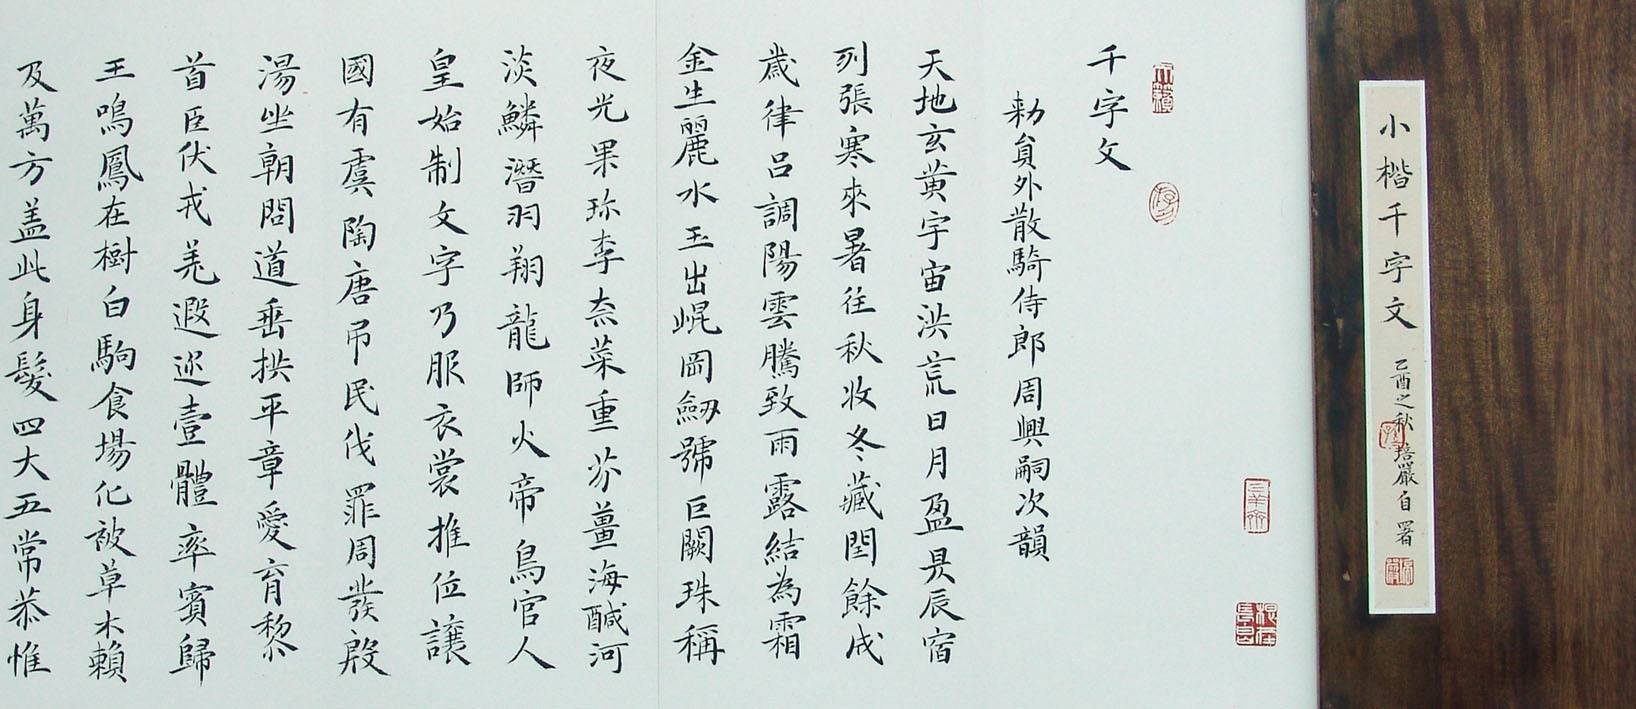 小楷千字文 乙酉之秋 培嚴自署
千字文
勑員外散騎侍郎周興嗣次韻
天地玄黄宇宙洪荒日月盈昃辰宿
列張寒來暑往秋收冬藏閏餘成
歲律呂調陽雲騰致雨露結為霜
金生麗水玉出崐岡劔號巨闕珠稱
夜光果珎李柰菜重芥薑海醎河
淡鱗潛羽翔龍師火帝鳥官人
皇始制文字乃服衣裳推位讓
國有虞陶唐吊民伐罪周發殷
湯坐朝問道垂拱平章愛育黎
首臣伏戎羌遐迩壹體率賓歸
王鳴鳳在樹白駒食場化被草木賴
及萬方盖此身髮四大五常恭惟